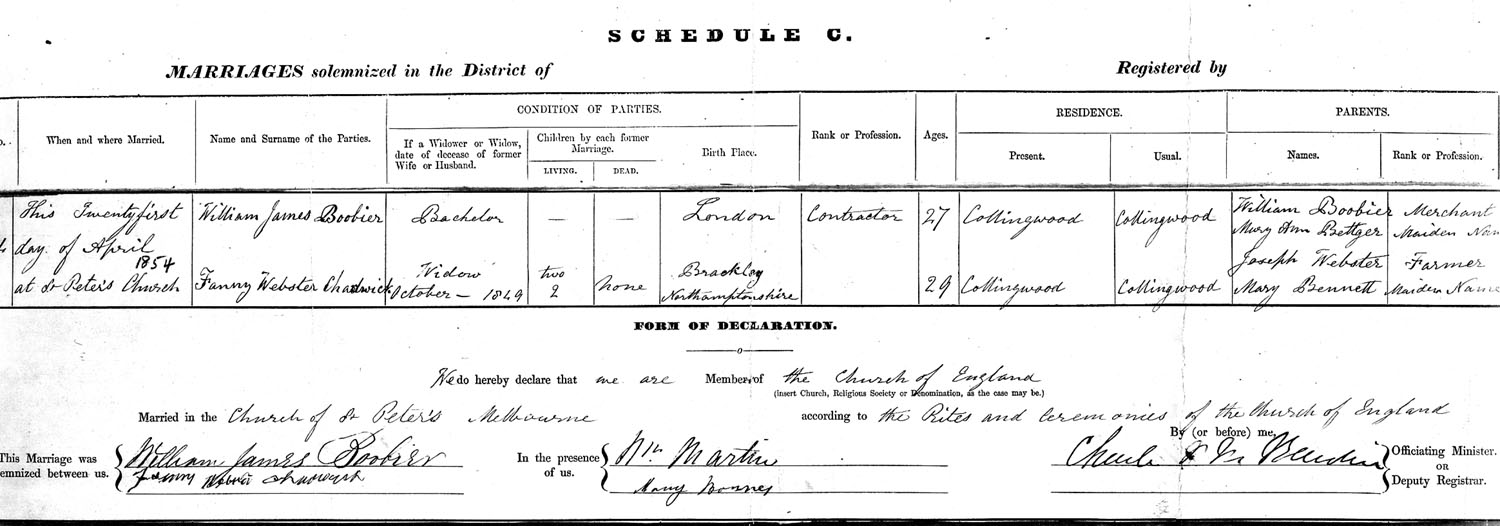 SCHEDULE C.
MARRIAGES solemnized in the District of
Registered by
CONDITION OF PARTIES.
RESIDENCE.
PARENTS.
When and where Married.
Name and Surname of the Parties.
If a Widower or Widow, date of decease of former Wife or Husband.
Children by each former Marriage.
LIVING.
DEAD.
Birth Place.
Rank or Profession.
Ages.
Present.
Usual.
Names.
Rank or Profession.
This Twentyfirst
day of April
1854
at St Peter's Church
William James Boobier
Bachelor
—
—
London
Contractor
27
Collingwood
Collingwood
William Boobier
Merchant
Mary Ann Bettger
Maiden Nam
Fanny Webster Chadwick
Widow
October — 1849
two
2
None
Brackley
Northamptonshire
29
Collingwood
Collingwood
Joseph Webster
Farmer
Mary Bennett
Maiden Name
FORM OF DECLARATION.
We do hereby declare that we are Members of the Church of England
(insert Church, Religious Society or Denomination, as the case may be.)
Married in the Church of St Peter's Melbourne according to the Rites and Ceremonies of the Church of England
By (or before) me,
This Marriage was
emnized between us.
William James Boobier
Fanny Webster Chadwick
In the presence
of us.
Wm Martin
Mary
Officiating Minister.
OR
Deputy Registrar.